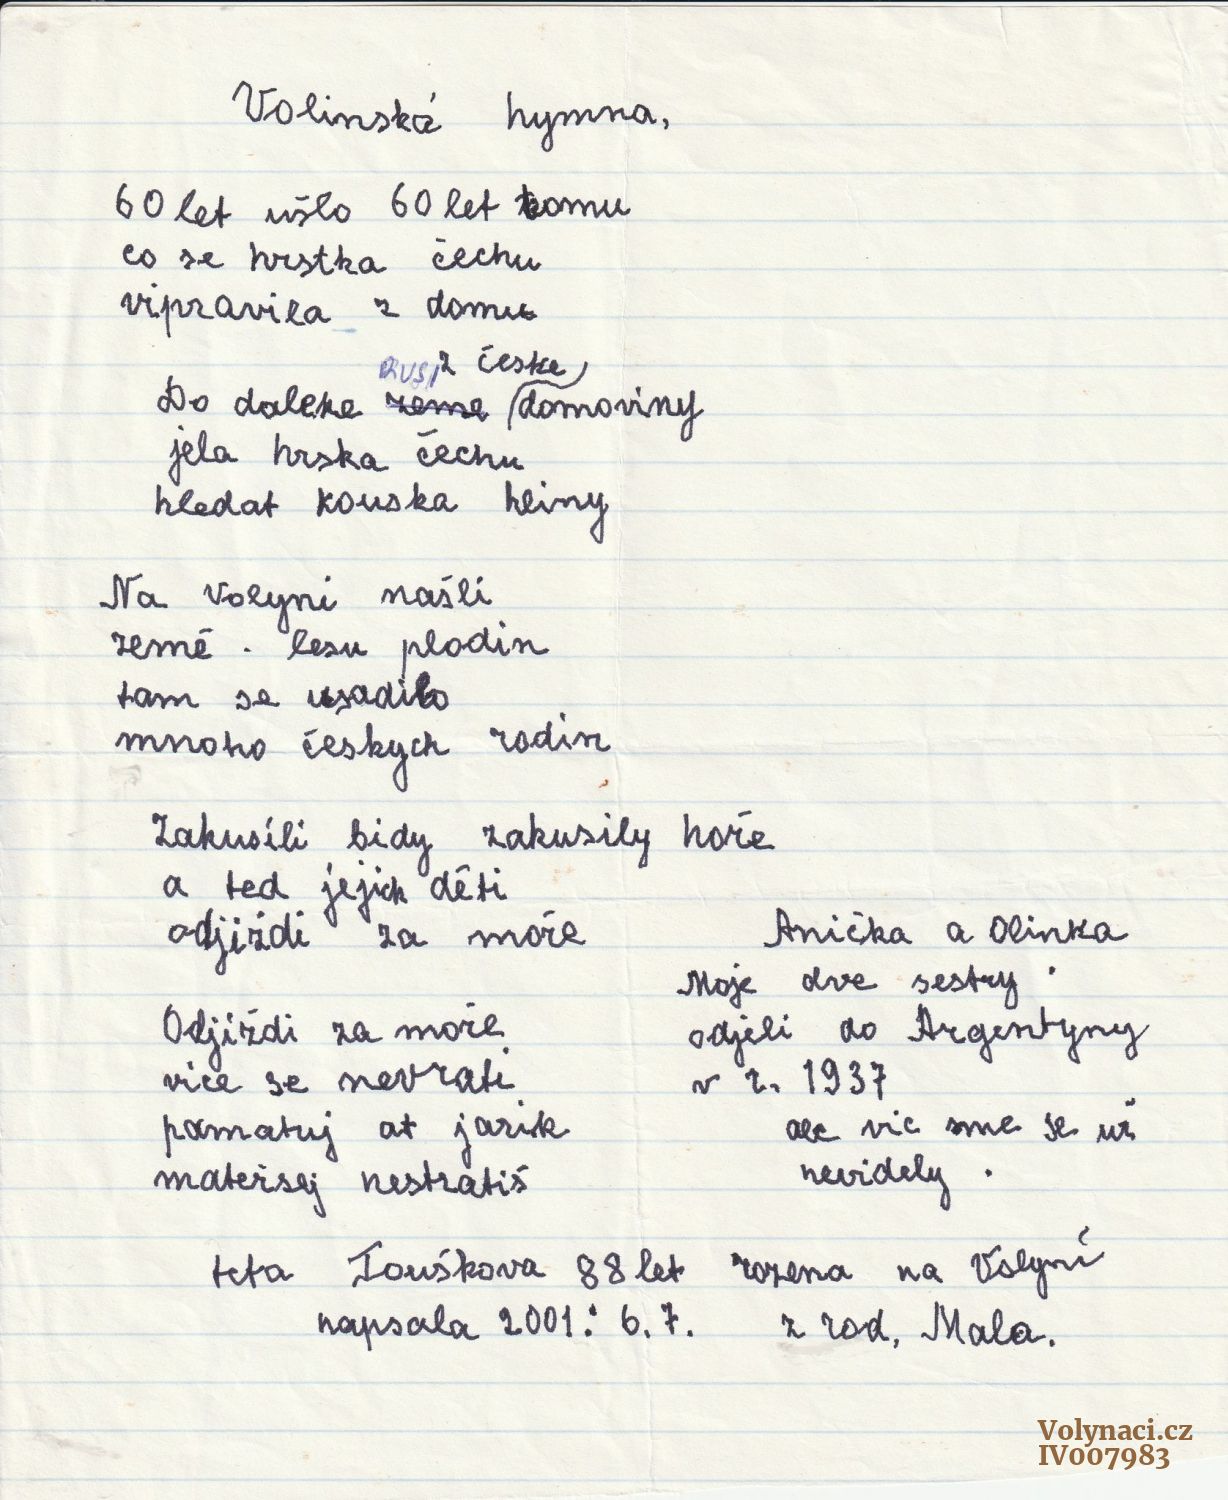 Volinská hymna,
60 let ušlo 60 let tomu
co se hrstka čechu
vipravila z domu
RUSI z česke
Do daleke zeme domoviny
jela hrska čechu
hledat kouska hliny
Na Volyni našli
země . lesu plodin
tam se usadilo
mnoho českych rodin
Zakusili bidy zakusily hoře
a ted jejich děti
odjiždi za moře
Odjiždi za moře
vice se nevrati
pamatuj at jazik
mateřsej nestratiš
Anička a Olinka
Moje dve sestry .
odjeli do Argentyny
v r. 1937
ale vic sme se už
nevidely .
teta Touškova 88 let rozena na Volyní
napsala 2001. 6. 7. z rod, Mala.
Volynaci.cz
IV007983